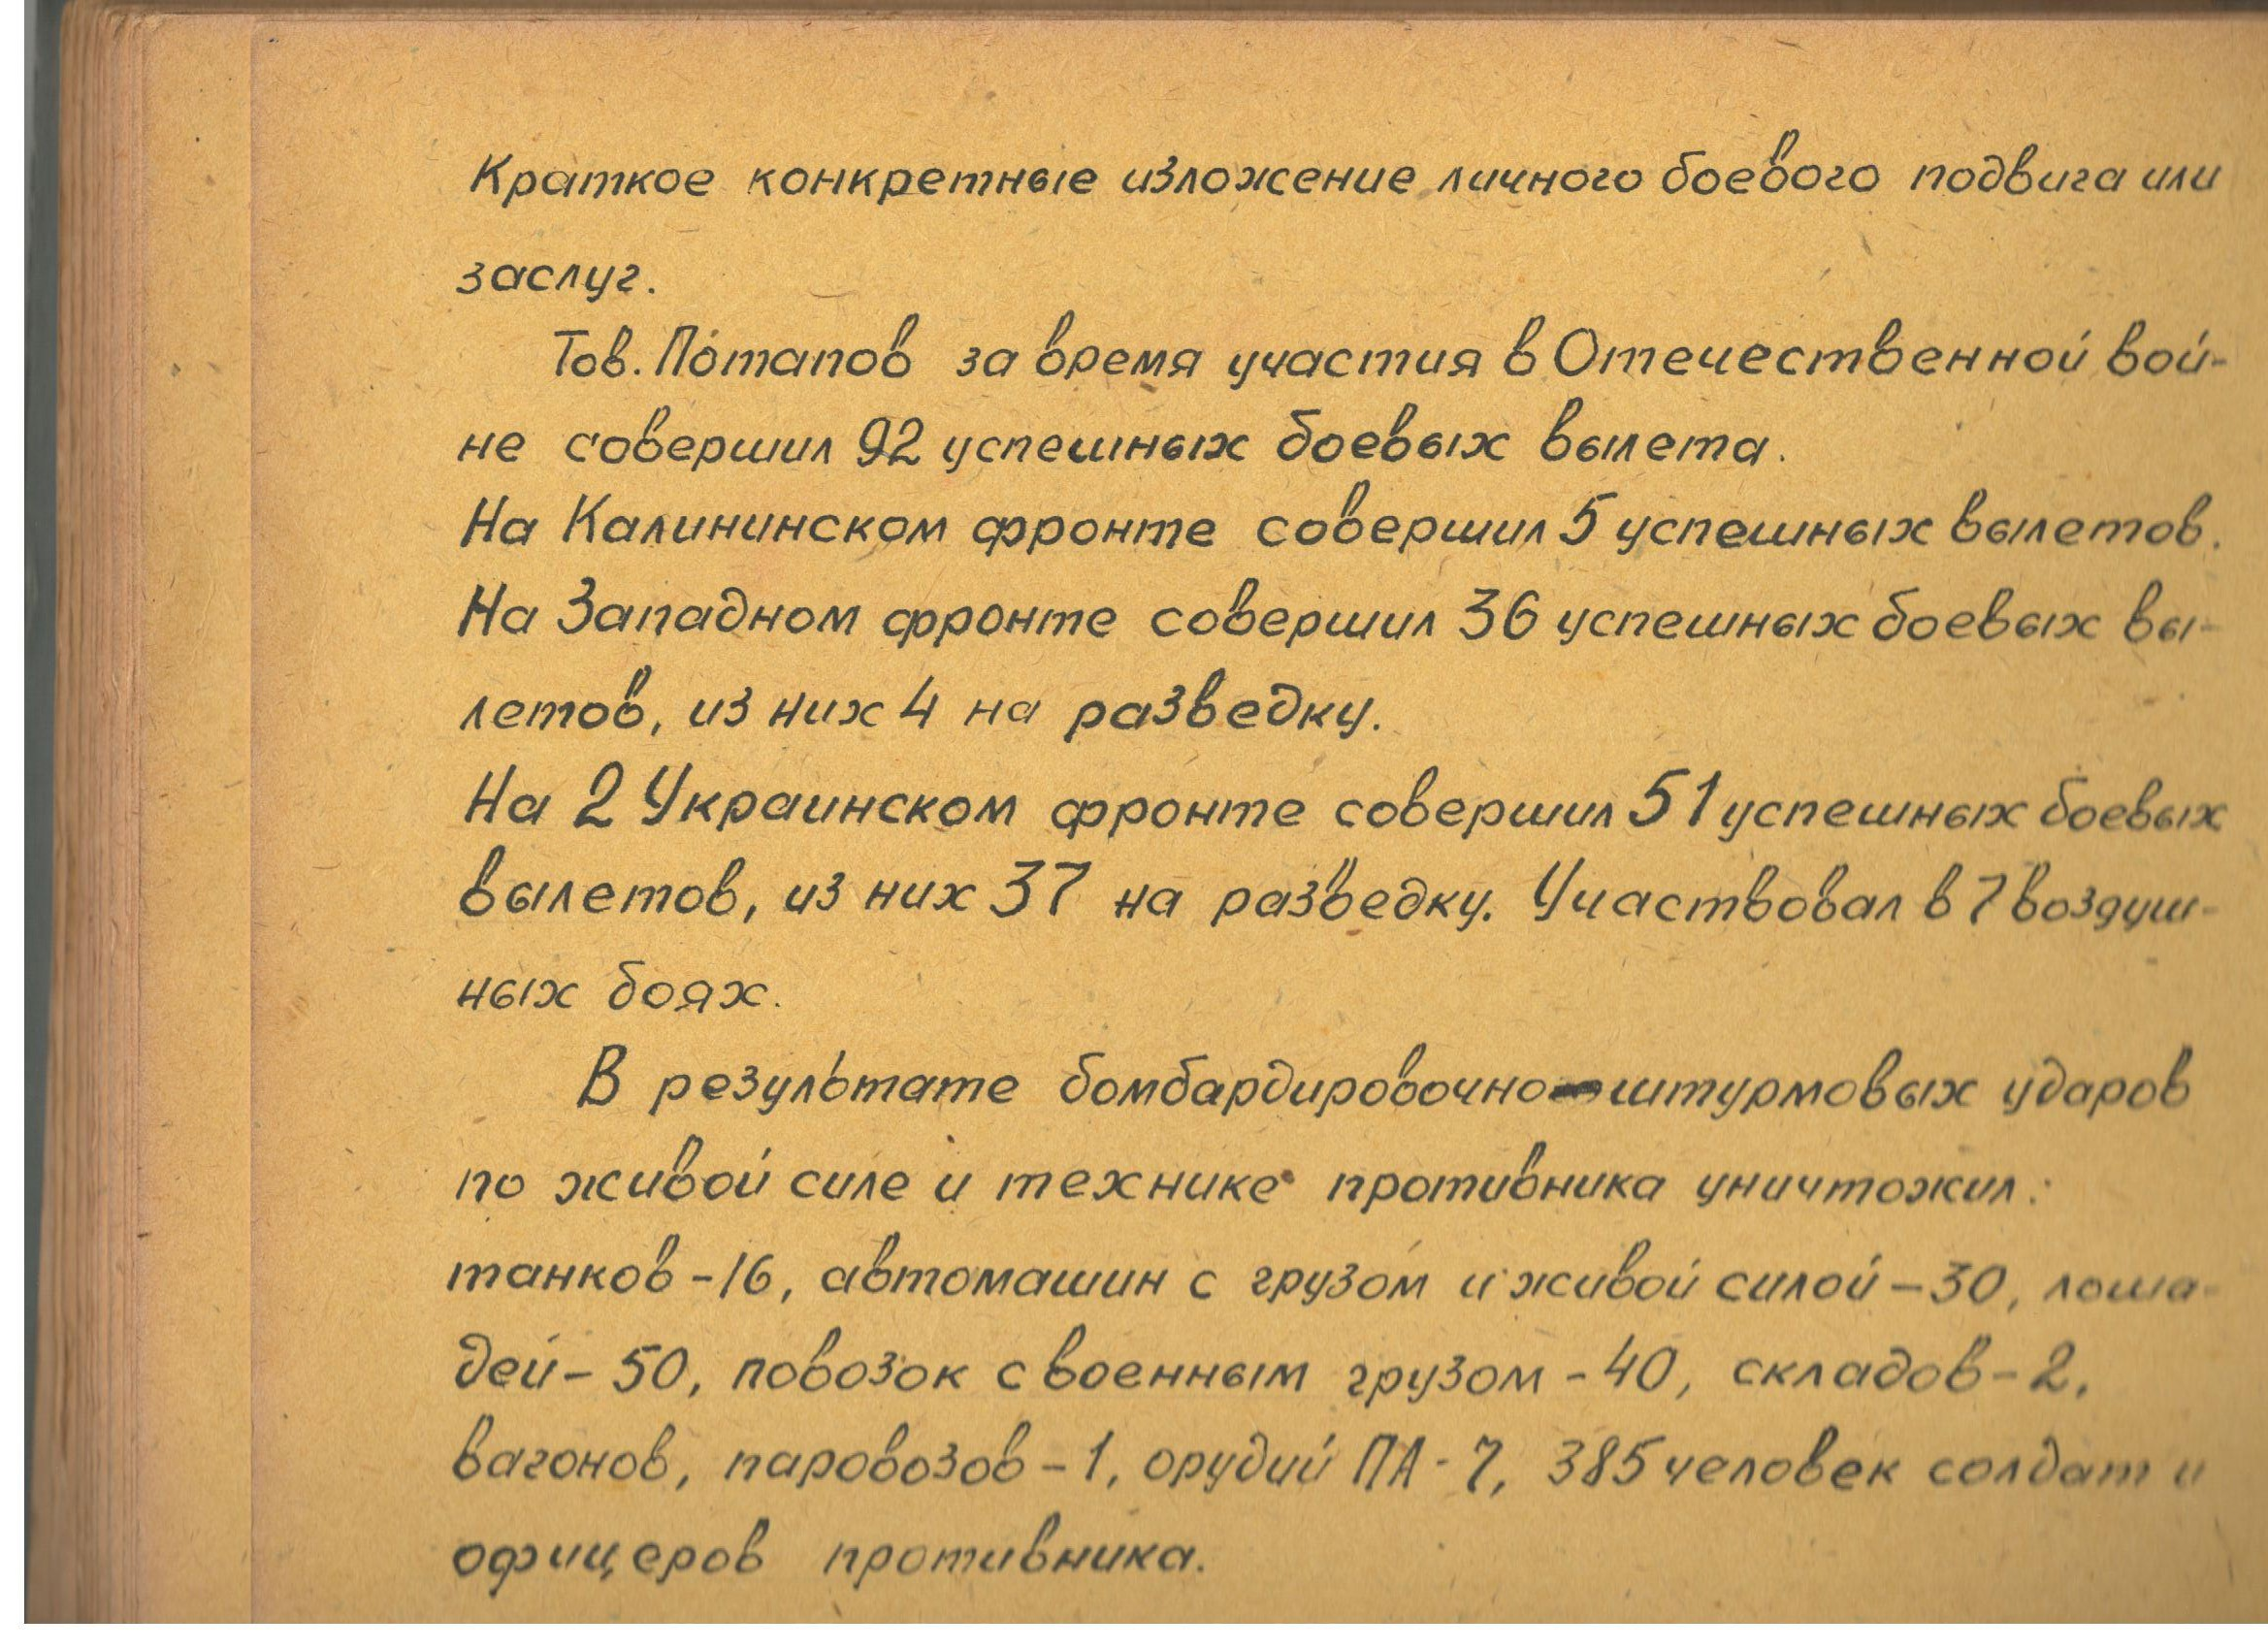 Краткое конкретные изложение личного боевого подвига или
заслуг.
Тов. Потапов за время участия в Отечественной вой-
не совершил 92 успешных боевых вылета.
На Калининском фронте совершил 5 успешных вылетов.
На Западном фронте совершил 36 успешных боевых вы-
летов, из них 4 на разведку.
На 2 Украинском фронте совершил 51 успешных боевых
вылетов, из них 37 на разведку. Участвовал в 7 воздуш-
ных боях.
В результате бомбардировочно-штурмовых ударов
по живой силе и технике противника уничтожил:
танков-16, автомашин с грузом и живой силой-30, лоша-
дей-50, повозок с военным грузом-40, складов-2,
вагонов, паровозов-1, орудий ПА-7, 385 человек солдат и
офицеров противника.